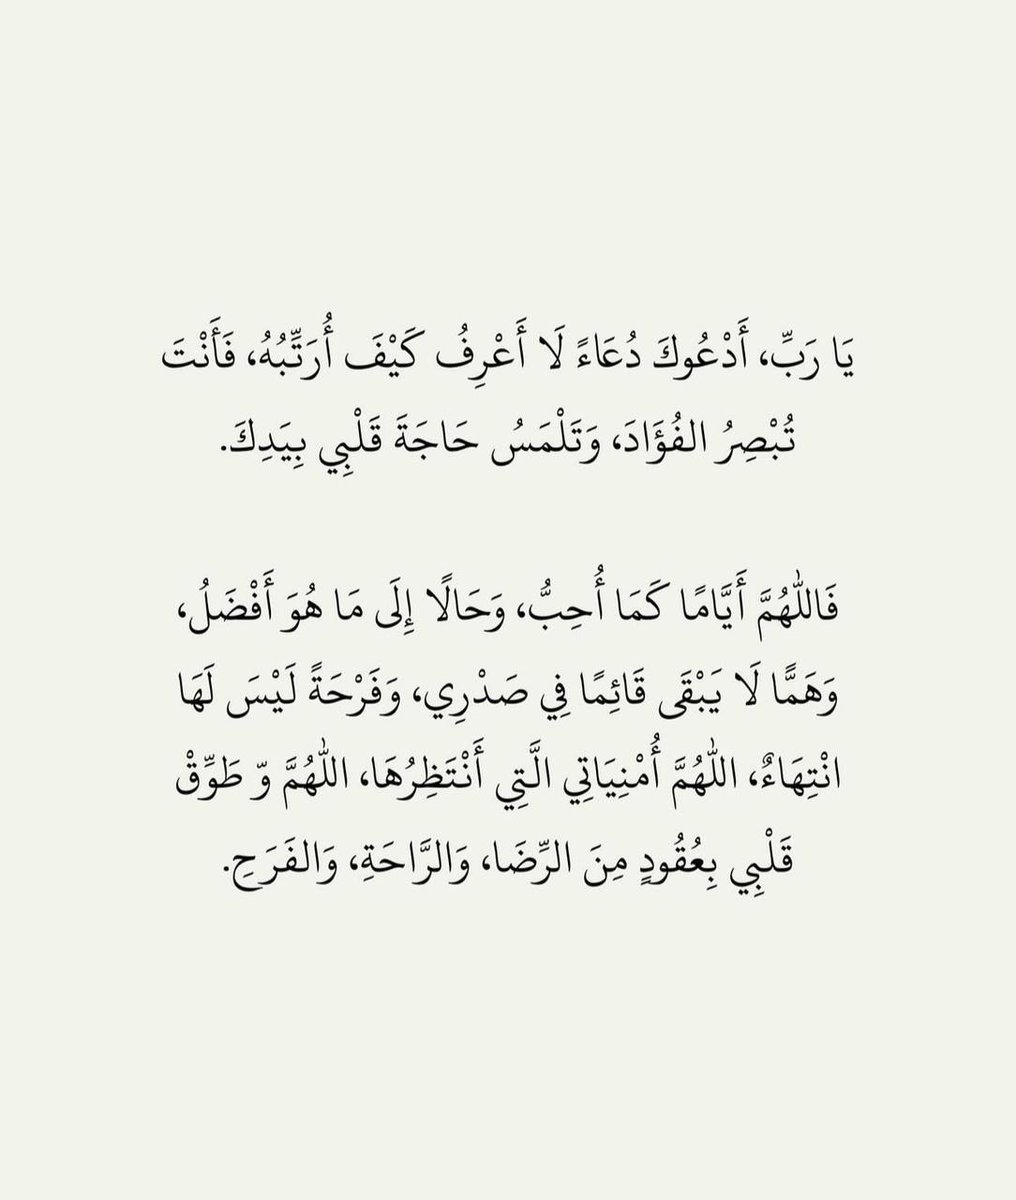 يَا رَبِّ، أَدْعُوكَ دُعَاءً لَا أَعْرِفُ كَيْفَ أُرَتِّبُهُ، فَأَنْتَ
تُبْصِرُ الفُؤَادَ، وَتَلْمَسُ حَاجَةَ قَلْبِي بِيَدِكَ.
فَاللّٰهُمَّ أَيَّامًا كَمَا أُحِبُّ، وَحَالًا إِلَى مَا هُوَ أَفْضَلُ،
وَهَمًّا لَا يَبْقَى قَائِمًا فِي صَدْرِي، وَفَرْحَةً لَيْسَ لَهَا
انْتِهَاءٌ، اللّٰهُمَّ أُمْنِيَاتِي الَّتِي أَنْتَظِرُهَا، اللّٰهُمَّ وّ طَوِّقْ
قَلْبِي بِعُقُودٍ مِنَ الرِّضَا، وَالرَّاحَةِ، وَالفَرَحِ.